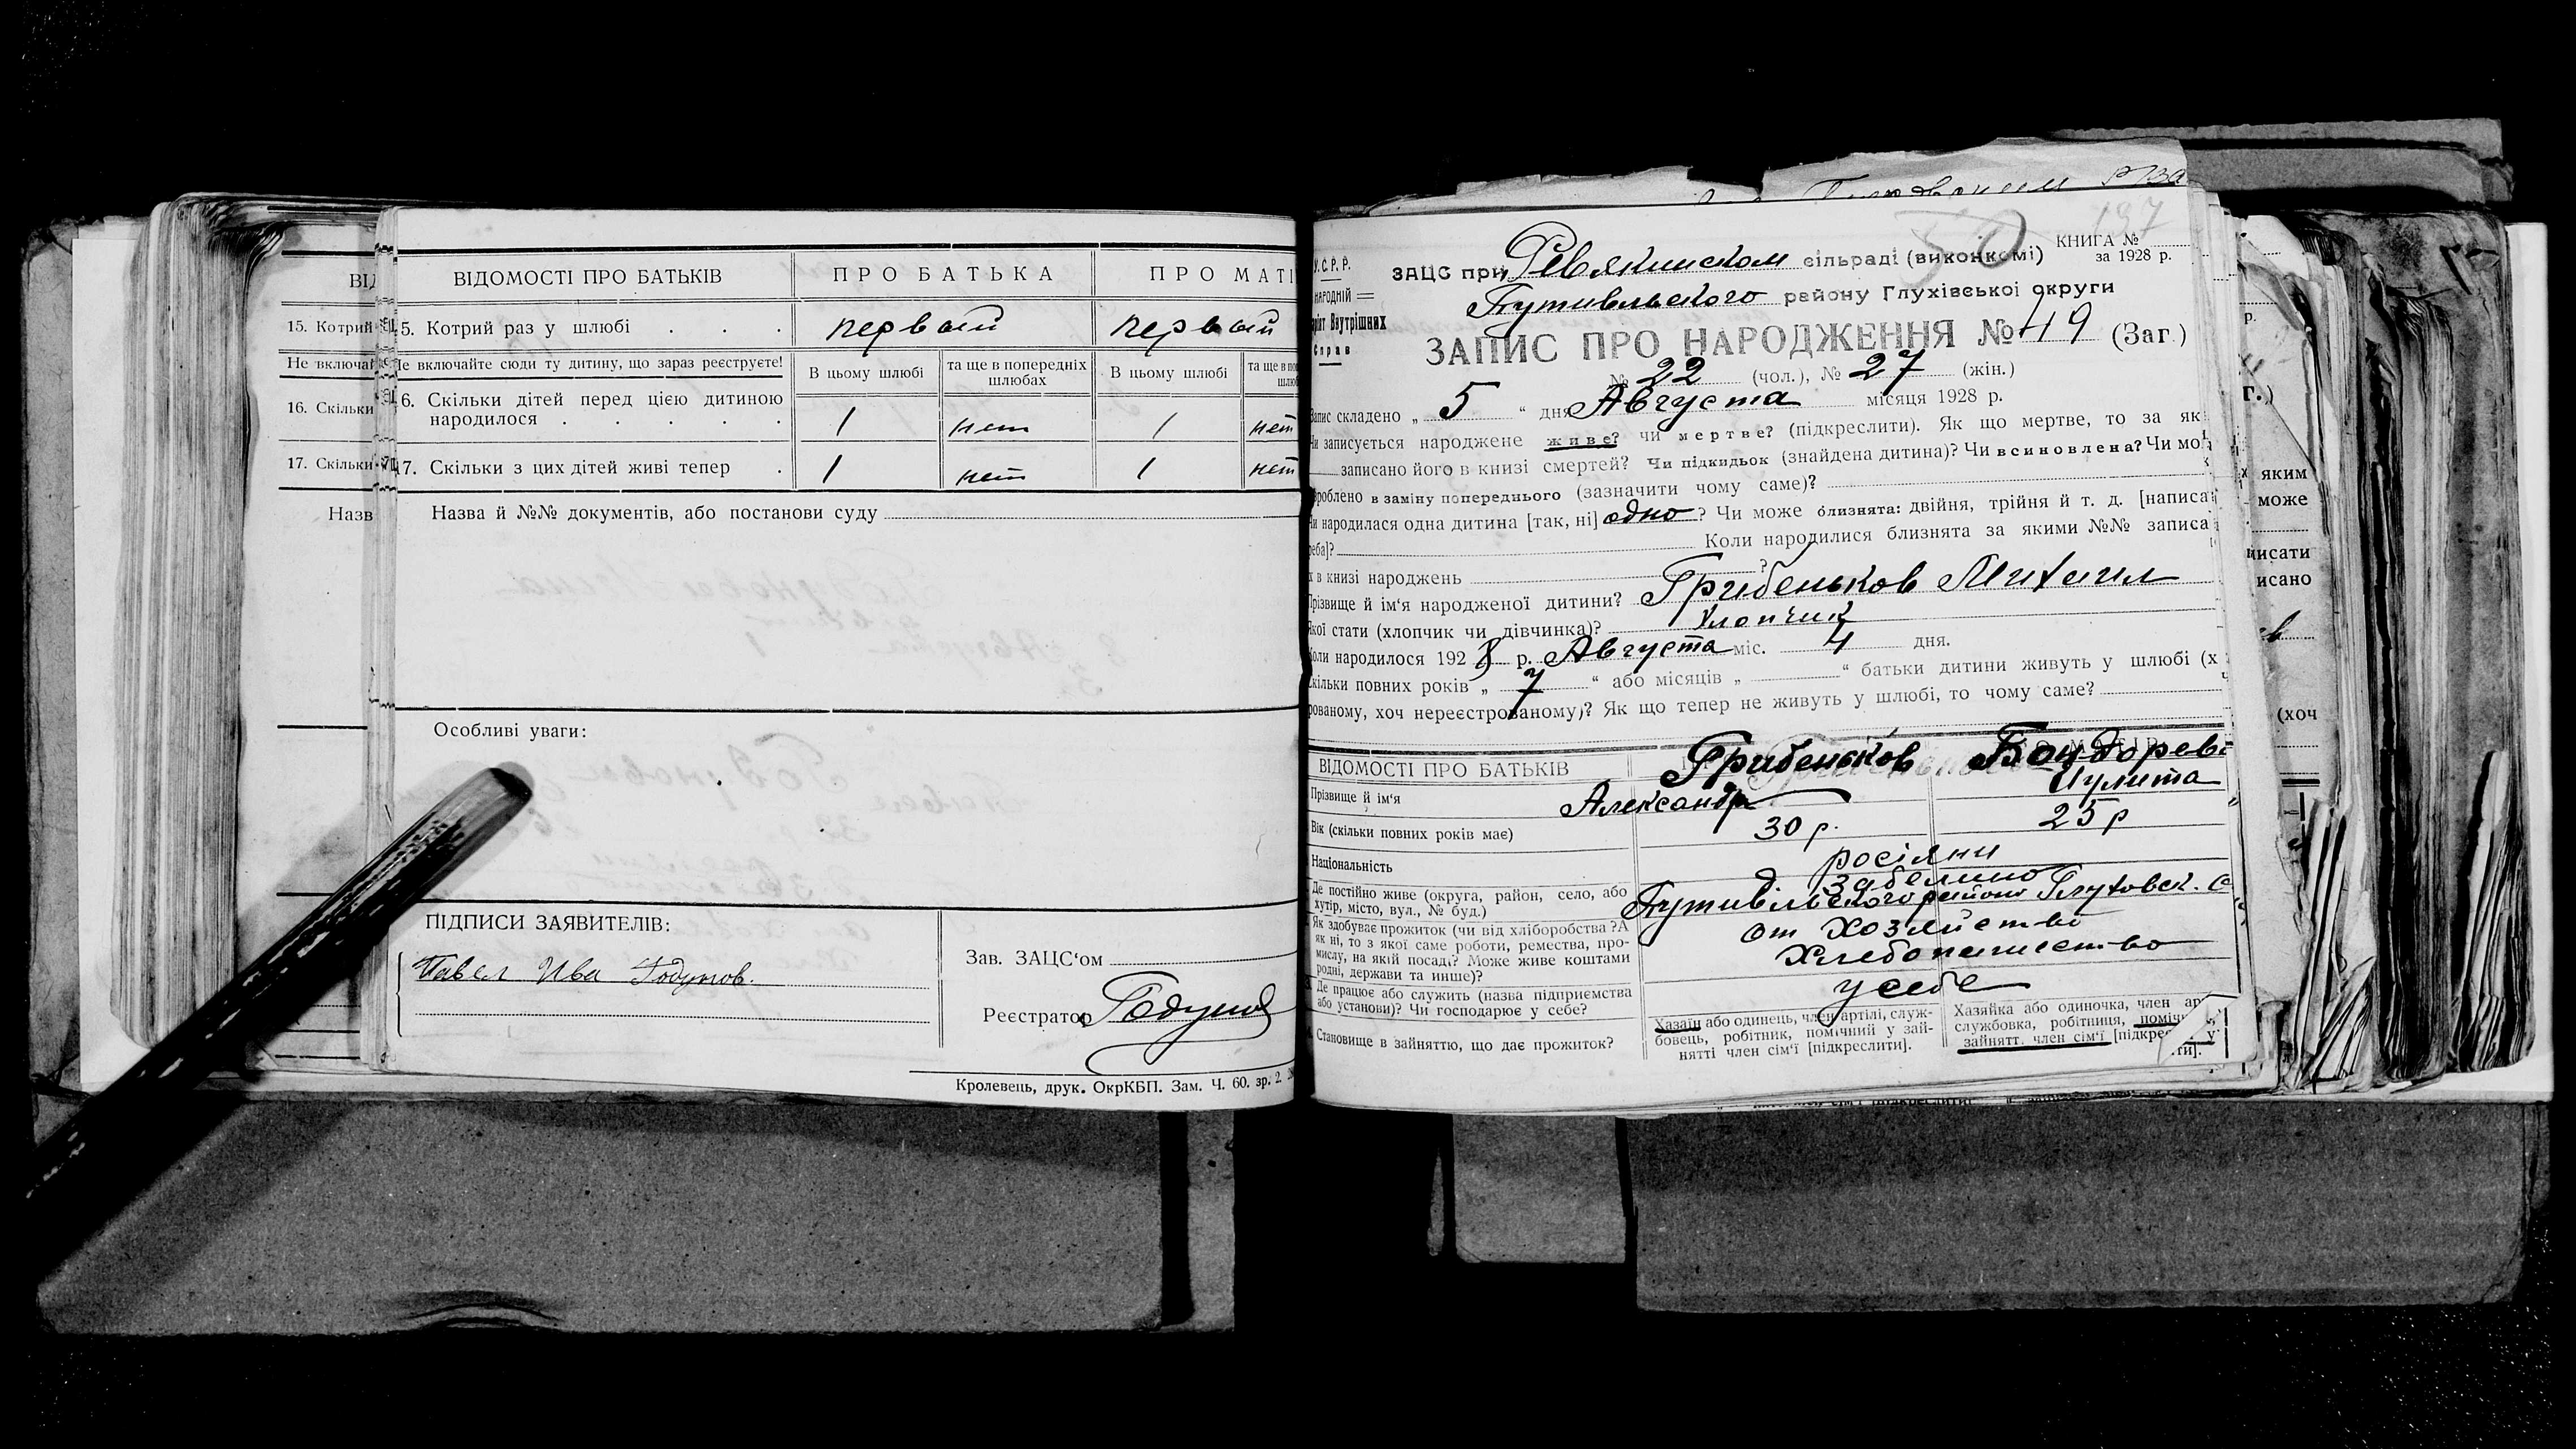 ВІДОМОСТІ ПРО БАТЬКІВ
ПРО БАТЬКА
ПРО МАТІ
15. Котрий
5. Котрий раз у шлюбі . . .
первый
первый
Не включай
Не включайте сюди ту дитину, що зараз реєструєте!
В цьому шлюбі
та ще в попередніх шлюбах
В цьому шлюбі
та ще в по
шлю
16. Скільки
6. Скільки дітей перед цією дитиною
народилося . . . . .
1
нет
1
нет
17. Скільки
7. Скільки з цих дітей живі тепер .
1
нет
1
нет
Назв
Назва й №№ документів, або постанови суду
Особливі уваги:
ПІДПИСИ ЗАЯВИТЕЛІВ:
Павел Ива Годунов.
Зав. ЗАЦС'ом
Реєстратор Годунов
Кролевець, друк. ОкрКБП. Зам. Ч. 60. зр. 2.
У.С.Р.Р.
НАРОДНІЙ
Внутрішних
Справ
197
50
КНИГА №
за 1928 р.
ЗАЦС при Ревякинском сільраді (виконкомі)
Путивльского району Глухівської округи
ЗАПИС ПРО НАРОДЖЕННЯ № 49 (Заг.)
№ 22 (чол.), № 27 (жін.)
Запис складено „ 5 “ дня Августа місяця 1928 р.
Чи записується народжене живе? чи мертве? (підкреслити). Як що мертве, то за як
записано його в книзі смертей? Чи підкидьок (знайдена дитина)? Чи всиновлена? Чи мо
зроблено в заміну попереднього (зазначити чому саме)?
Чи народилася одна дитина [так, ні] одно? Чи може близнята: двійня, трійня й т. д. [написа
реба]? Коли народилися близнята за якими №№ записа
х в книзі народжень ?
Прізвище й ім'я народженої дитини? Грибеньков Михаил
Якої стати (хлопчик чи дівчинка)? Хлопчик
Коли народилось 1928 р. Августа міс. 4 дня.
Скільки повних років „ 7 “ або місяців „ “ батьки дитини живуть у шлюбі (х
рованому, хоч нереєстрованому)? Як що тепер не живуть у шлюбі, то чому саме?
ВІДОМОСТІ ПРО БАТЬКІВ
Грибеньков
Бондорев
Прізвище й ім'я
Александр
Иулита
Вік (скільки повних років має)
30 р.
25 р
Національність
росіяни
Де постійно живе (округа, район, село, або
хутір, місто, вул., № буд.)
д Забелино
Путивільского району Глуховск. О
Як здобуває прожиток (чи від хліборобства? А
як ні, то з якої саме роботи, ремества, про-
мислу, на якій посаді? Може живе коштами
родні, держави та инше)?
от Хозяйство
Хлебопашество
Де працює або служить (назва підприємства
або установи)? Чи господарює у себе?
у себе
Становище в зайняттю, що дає прожиток?
Хазаїн або одинець, член артілі, служ-
бовець, робітник, помічний у зай-
нятті член сім'ї [підкреслити].
Хазяйка або одиночка, член ар
службовка, робітниця, поміч
зайнятт. член сім'ї [підкре
яким
може
писати
исано
(хоч